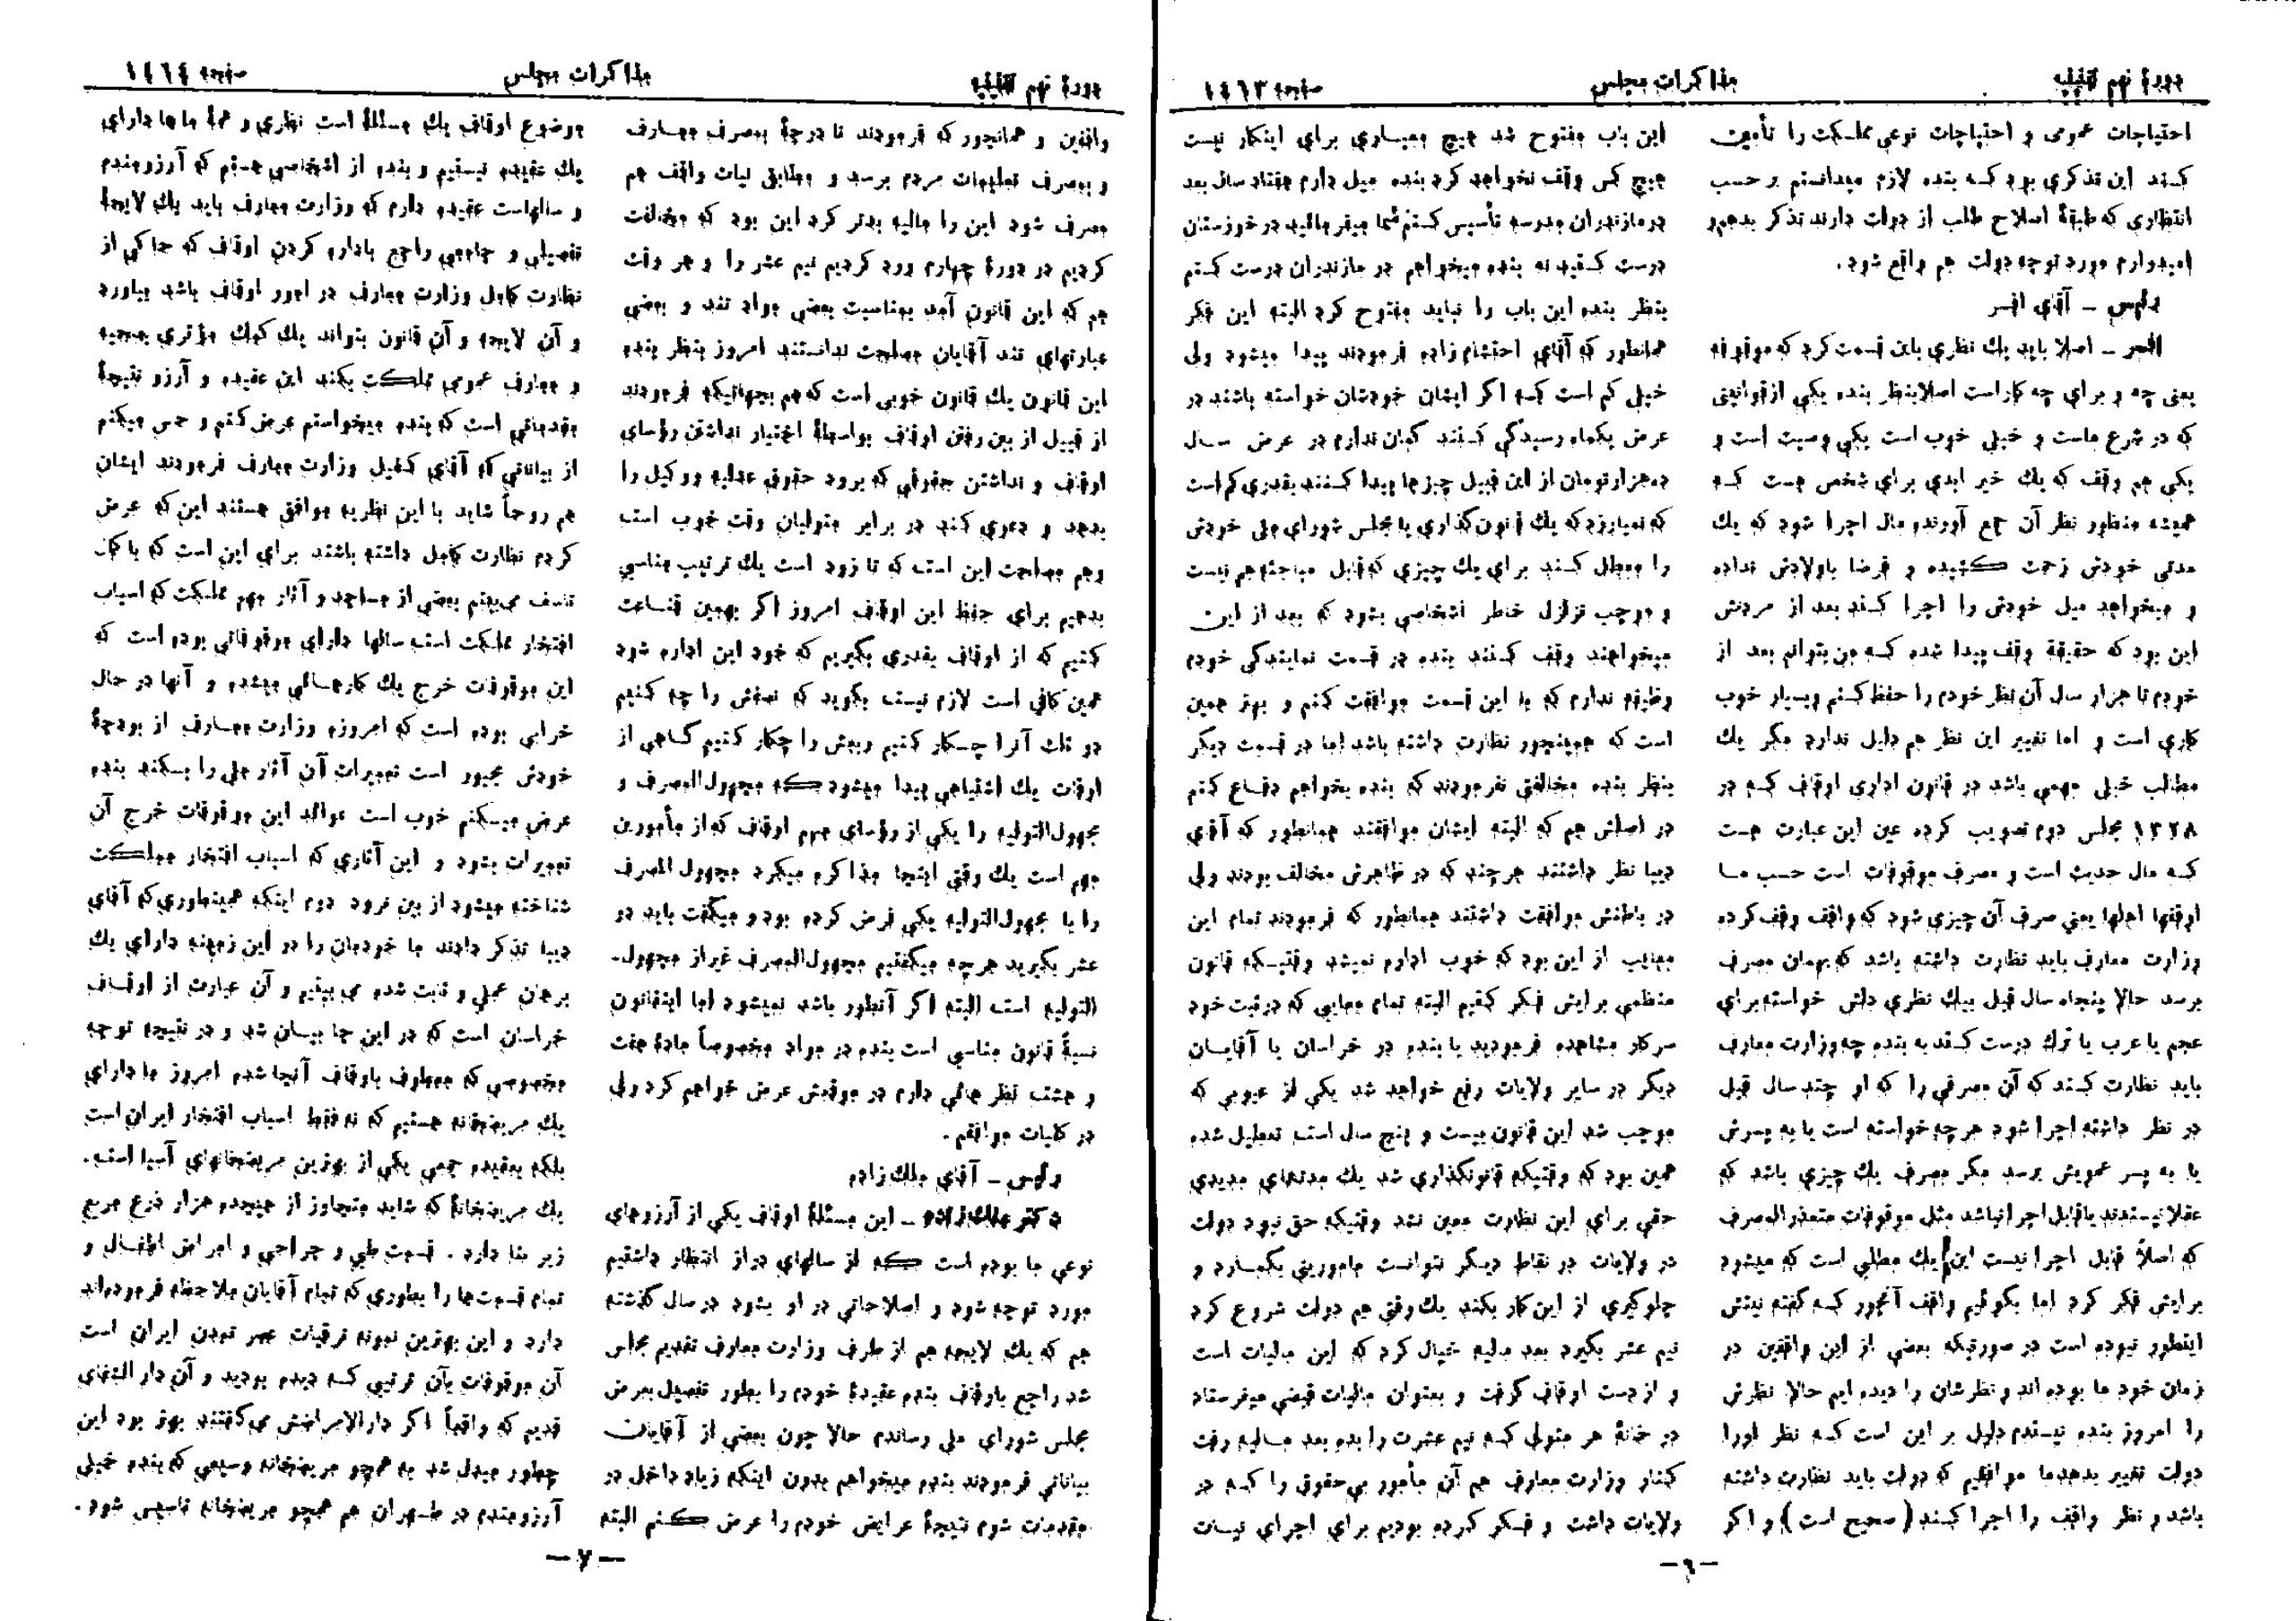 دورهٔ نهم تقنینیه
مذاکرات مجلس
صفحه ۱٤٦۳
احتیاجات عمومی و احتیاجات نوعی مملکت را تأمین
کنند این تذکری بود که بنده لازم میدانستم بر حسب
انتظاری که طبقهٔ اصلاح طلب از دولت دارند تذکر بدهم و
امیدوارم مورد توجه دولت هم واقع شود.
رئیس ـ آقای افسر
افسر ـ اصلا باید یك نظری باین قسمت کرد که موقوفه
یعنی چه و برای چه کار است اصلا بنظر بنده یکی از قوانینی
که در شرع ماست و خیلی خوب است یکی وصیت است و
یکی هم وقف که یك خیر ابدی برای شخص هست که
همیشه منظور نظر آن جمع آورنده مال اجرا شود که یك
مدتی خودش زحمت کشیده و فرضا باولادش نداده
و میخواهد میل خودش را اجرا کند بعد از مردنش
این بود که حقیقة وقف پیدا شده که من بتوانم بعد از
خودم تا هزار سال آن نظر خودم را حفظ کنم وبسیار خوب
کاری است و اما تغییر این نظر هم دلیل ندارد مگر یك
مطالب خیلی مهمی باشد در قانون اداری اوقاف که در
۱۳۲۸ مجلس دوم تصویب کرده عین این عبارت هست
که مال حدیث است و مصرف موقوفات است حسب ما
اوقفها اهلها یعنی صرف آن چیزی شود که واقف وقف کرده
وزارت معارف باید نظارت داشته باشد که بهمان مصرف
برسد حالا پنجاه سال قبل بیك نظری دلش خواسته برای
عجم یا عرب یا ترك درست کند به بنده چه وزارت معارف
باید نظارت کند که آن مصرفی را که او چند سال قبل
در نظر داشته اجرا شود هر چه خواسته است یا به پسرش
یا به پسر عمویش برسد مگر مصرف یك چیزی باشد که
عقلا نپسندند یا قابل اجرا نباشد مثل موقوفات متعذر المصرف
که اصلاً قابل اجرا نیست این یك مطلبی است که میشود
برایش فکر کرد اما بگوئیم واقف آنجور که گفته نیتش
اینطور نبوده است در صورتیکه بعضی از این واقفین در
زمان خود ما بوده اند و نظرشان را دیده ایم حالا نظرش
را امروز بنده نپسندم دلیل بر این است که نظر اورا
دولت تغییر بدهد ما موافقیم که دولت باید نظارت داشته
باشد و نظر واقف را اجرا کند (صحیح است) و اگر
این باب مفتوح شد هیچ معیاری برای اینکار نیست
هیچ کس وقف نخواهد کرد بنده میل دارم هفتاد سال بعد
در مازندران مدرسه تأسیس کنم شما میفرمائید در خوزستان
درست کنید نه بنده میخواهم در مازندران درست کنم
بنظر بنده این باب را نباید مفتوح کرد البته این فکر
همانطور که آقای احتشام زاده فرمودند پیدا میشود ولی
خیلی کم است که اگر ایشان خودشان خواسته باشند در
عرض یکماه رسیدگی کنند گمان ندارم در عرض سال
ده هزار تومان از این قبیل چیزها پیدا کنند بقدری کم است
که نمیارزد که یك قانون گذاری یا مجلس شورای ملی خودش
را معطل کند برای یك چیزی که قابل مباحثه هم نیست
و موجب تزلزل خاطر اشخاصی بشود که بعد از این
میخواهند وقف کنند بنده در قسمت نمایندگی خودم
وظیفه ندارم که با این قسمت موافقت کنم و بهتر همین
است که همینجور نظارت داشته باشد اما در قسمت دیگر
بنظر بنده مخالفتی نفرمودند که بنده بخواهم دفاع کنم
در اصلش هم که البته ایشان موافقند همانطور که آقای
دیبا نظر داشتند هر چند که در ظاهرش مخالف بودند ولی
در باطنش موافقت داشتند همانطور که فرمودند تمام این
معایب از این بود که خوب اداره نمیشد وقتیکه قانون
منظمی برایش فکر کنیم البته تمام معایبی که در نیت خود
سرکار مشاهده فرمودید یا بنده در خراسان یا آقایان
دیگر در سایر ولایات رفع خواهد شد یکی از عیوبی که
موجب شد این قانون بیست و پنج سال است تعطیل شده
همین بود که وقتیکه قانونگذاری شد یك مدتهای مدیدی
حقی برای این نظارت معین نشد وقتیکه حق نبود دولت
در ولایات در نقاط دیگر نتوانست مامورینی بگمارد و
جلوگیری از این کار بکند یك وقتی هم دولت شروع کرد
نیم عشر بگیرد بعد مالیه خیال کرد که این مالیات است
و از دست اوقاف گرفت و بعنوان مالیات قبضی میفرستاد
در خانهٔ هر متولی که نیم عشرت را بده بعد مالیه رفت
کنار وزارت معارف هم آن مأمور بی حقوق را که در
ولایات داشت و فکر کرده بودیم برای اجرای نیات
ـ ٦ ـ
دورهٔ نهم تقنینیه
مذاکرات مجلس
صفحه ۱٤٦٤
واقفین و همانجور که فرمودند تا درجهٔ بمصرف معارف
و بمصرف تعلیمات مردم برسد و مطابق نیات واقف هم
مصرف شود این را مالیه بدتر کرد این بود که مخالفت
کردیم در دورهٔ چهارم ورد کردیم نیم عشر را و هر وقت
هم که این قانون آمد بمناسبت بعضی مواد تند و بعضی
عبارتهای تند آقایان مصلحت ندانستند امروز بنظر بنده
این قانون یك قانون خوبی است که هم بجهاتیکه فرمودند
از قبیل از بین رفتن اوقاف بواسطهٔ اختیار نداشتن رؤسای
اوقاف و نداشتن حقوقی که برود حقوق عدلیه و وکیل را
بدهد و دعوی کند در برابر متولیان وقت خوب است
وهم مصلحت این است که تا زود است یك ترتیب مناسبی
بدهیم برای حفظ این اوقاف امروز اگر بهمین قناعت
کنیم که از اوقاف بقدری بگیریم که خود این اداره شود
همین کافی است لازم نیست بگوید که نصفش را چه کنیم
دو ثلث آنرا چکار کنیم ربعش را چکار کنیم گاهی از
اوقات یك اشتباهی پیدا میشود که مجهول المصرف و
مجهول التولیه را یکی از رؤسای مهم اوقاف که از مأمورین
مهم است یك وقتی اینجا مذاکره میکرد مجهول المصرف
را با مجهول التولیه یکی فرض کرده بود و میگفت باید دو
عشر بگیرید هر چه میگفتیم مجهول المصرف غیر از مجهول‌ـ
التولیه است البته اگر آنطور باشد نمیشود اما این قانون
نسبةً قانون مناسبی است بنده در مواد مخصوصاً مادهٔ هفت
و هشت نظر هائی دارم در موقعش عرض خواهم کرد ولی
در کلیات موافقم.
رئیس ـ آقای ملك زاده
دکتر ملك زاده ـ این مسئلهٔ اوقاف یکی از آرزوهای
نوعی ما بوده است که از سالهای دراز انتظار داشتیم
مورد توجه شود و اصلاحاتی در او بشود در سال گذشته
هم که یك لایحه هم از طرف وزارت معارف تقدیم مجلس
شد راجع باوقاف بنده عقیدهٔ خودم را بطور تفصیل بعرض
مجلس شورای ملی رساندم حالا چون بعضی از آقایان
بیاناتی فرمودند بنده میخواهم بدون اینکه زیاد داخل در
مقدمات شوم نتیجهٔ عرایض خودم را عرض کنم البته
موضوع اوقاف یك مسئلهٔ است نظری و همهٔ ماها دارای
یك عقیده نیستیم و بنده از اشخاصی هستم که آرزومندم
و سالهاست عقیده دارم که وزارت معارف باید یك لایحهٔ
تفصیلی و جامعی راجع باداره کردن اوقاف که حاکی از
نظارت کامل وزارت معارف در امور اوقاف باشد بیاورد
و آن لایحه و آن قانون بتواند یك کمك مؤثری بصحیه
و معارف عمومی مملکت بکند این عقیده و آرزو نتیجهٔ
مقدماتی است که بنده میخواستم عرض کنم و حس میکنم
از بیاناتی که آقای کفیل وزارت معارف فرمودند ایشان
هم روحاً شاید با این نظریه موافق هستند این که عرض
کردم نظارت کامل داشته باشند برای این است که با کمال
تاسف می بینم بعضی از مساجد و آثار مهم مملکت که اسباب
افتخار مملکت است سالها دارای موقوفاتی بوده است که
این موقوفات خرج یك کارهائی میشده و آنها در حال
خرابی بوده است که امروزه وزارت معارف از بودجهٔ
خودش مجبور است تعمیرات آن آثار ملی را بکند بنده
عرض میکنم خوب است عوائد این موقوفات خرج آن
تعمیرات بشود و این آثاری که اسباب افتخار مملکت
شناخته میشود از بین نرود دوم اینکه همینطوری که آقای
دیبا تذکر دادند ما خودمان را در این زمینه دارای یك
برهان عملی و ثابت شده می بینیم و آن عبارت از اوقاف
خراسان است که در این جا بیان شد و در نتیجه توجه
مخصوصی که معارف باوقاف آنجا شده امروز ما دارای
یك مریضخانه هستیم که نه فقط اسباب افتخار ایران است
بلکه بعقیده جمعی یکی از بهترین مریضخانهای آسیا است.
یك مریضخانهٔ که شاید متجاوز از هیجده هزار ذرع مربع
زیر بنا دارد. قسمت طبی و جراحی و امراض اطفال و
تمام قسمت ها را بطوری که تمام آقایان ملاحظه فرموده‌اند
دارد و این بهترین نمونه ترقیات عصر تمدن ایران است
آن موقوفات بآن ترتیبی که دیده بودید و آن دار الشفای
قدیم که واقعاً اگر دارالامراضش می گفتند بهتر بود این
چطور مبدل شد به همچو مریضخانه وسیعی که بنده خیلی
آرزومندم در طهران هم همچو مریضخانه تاسیس شود.
ـ ۷ ـ